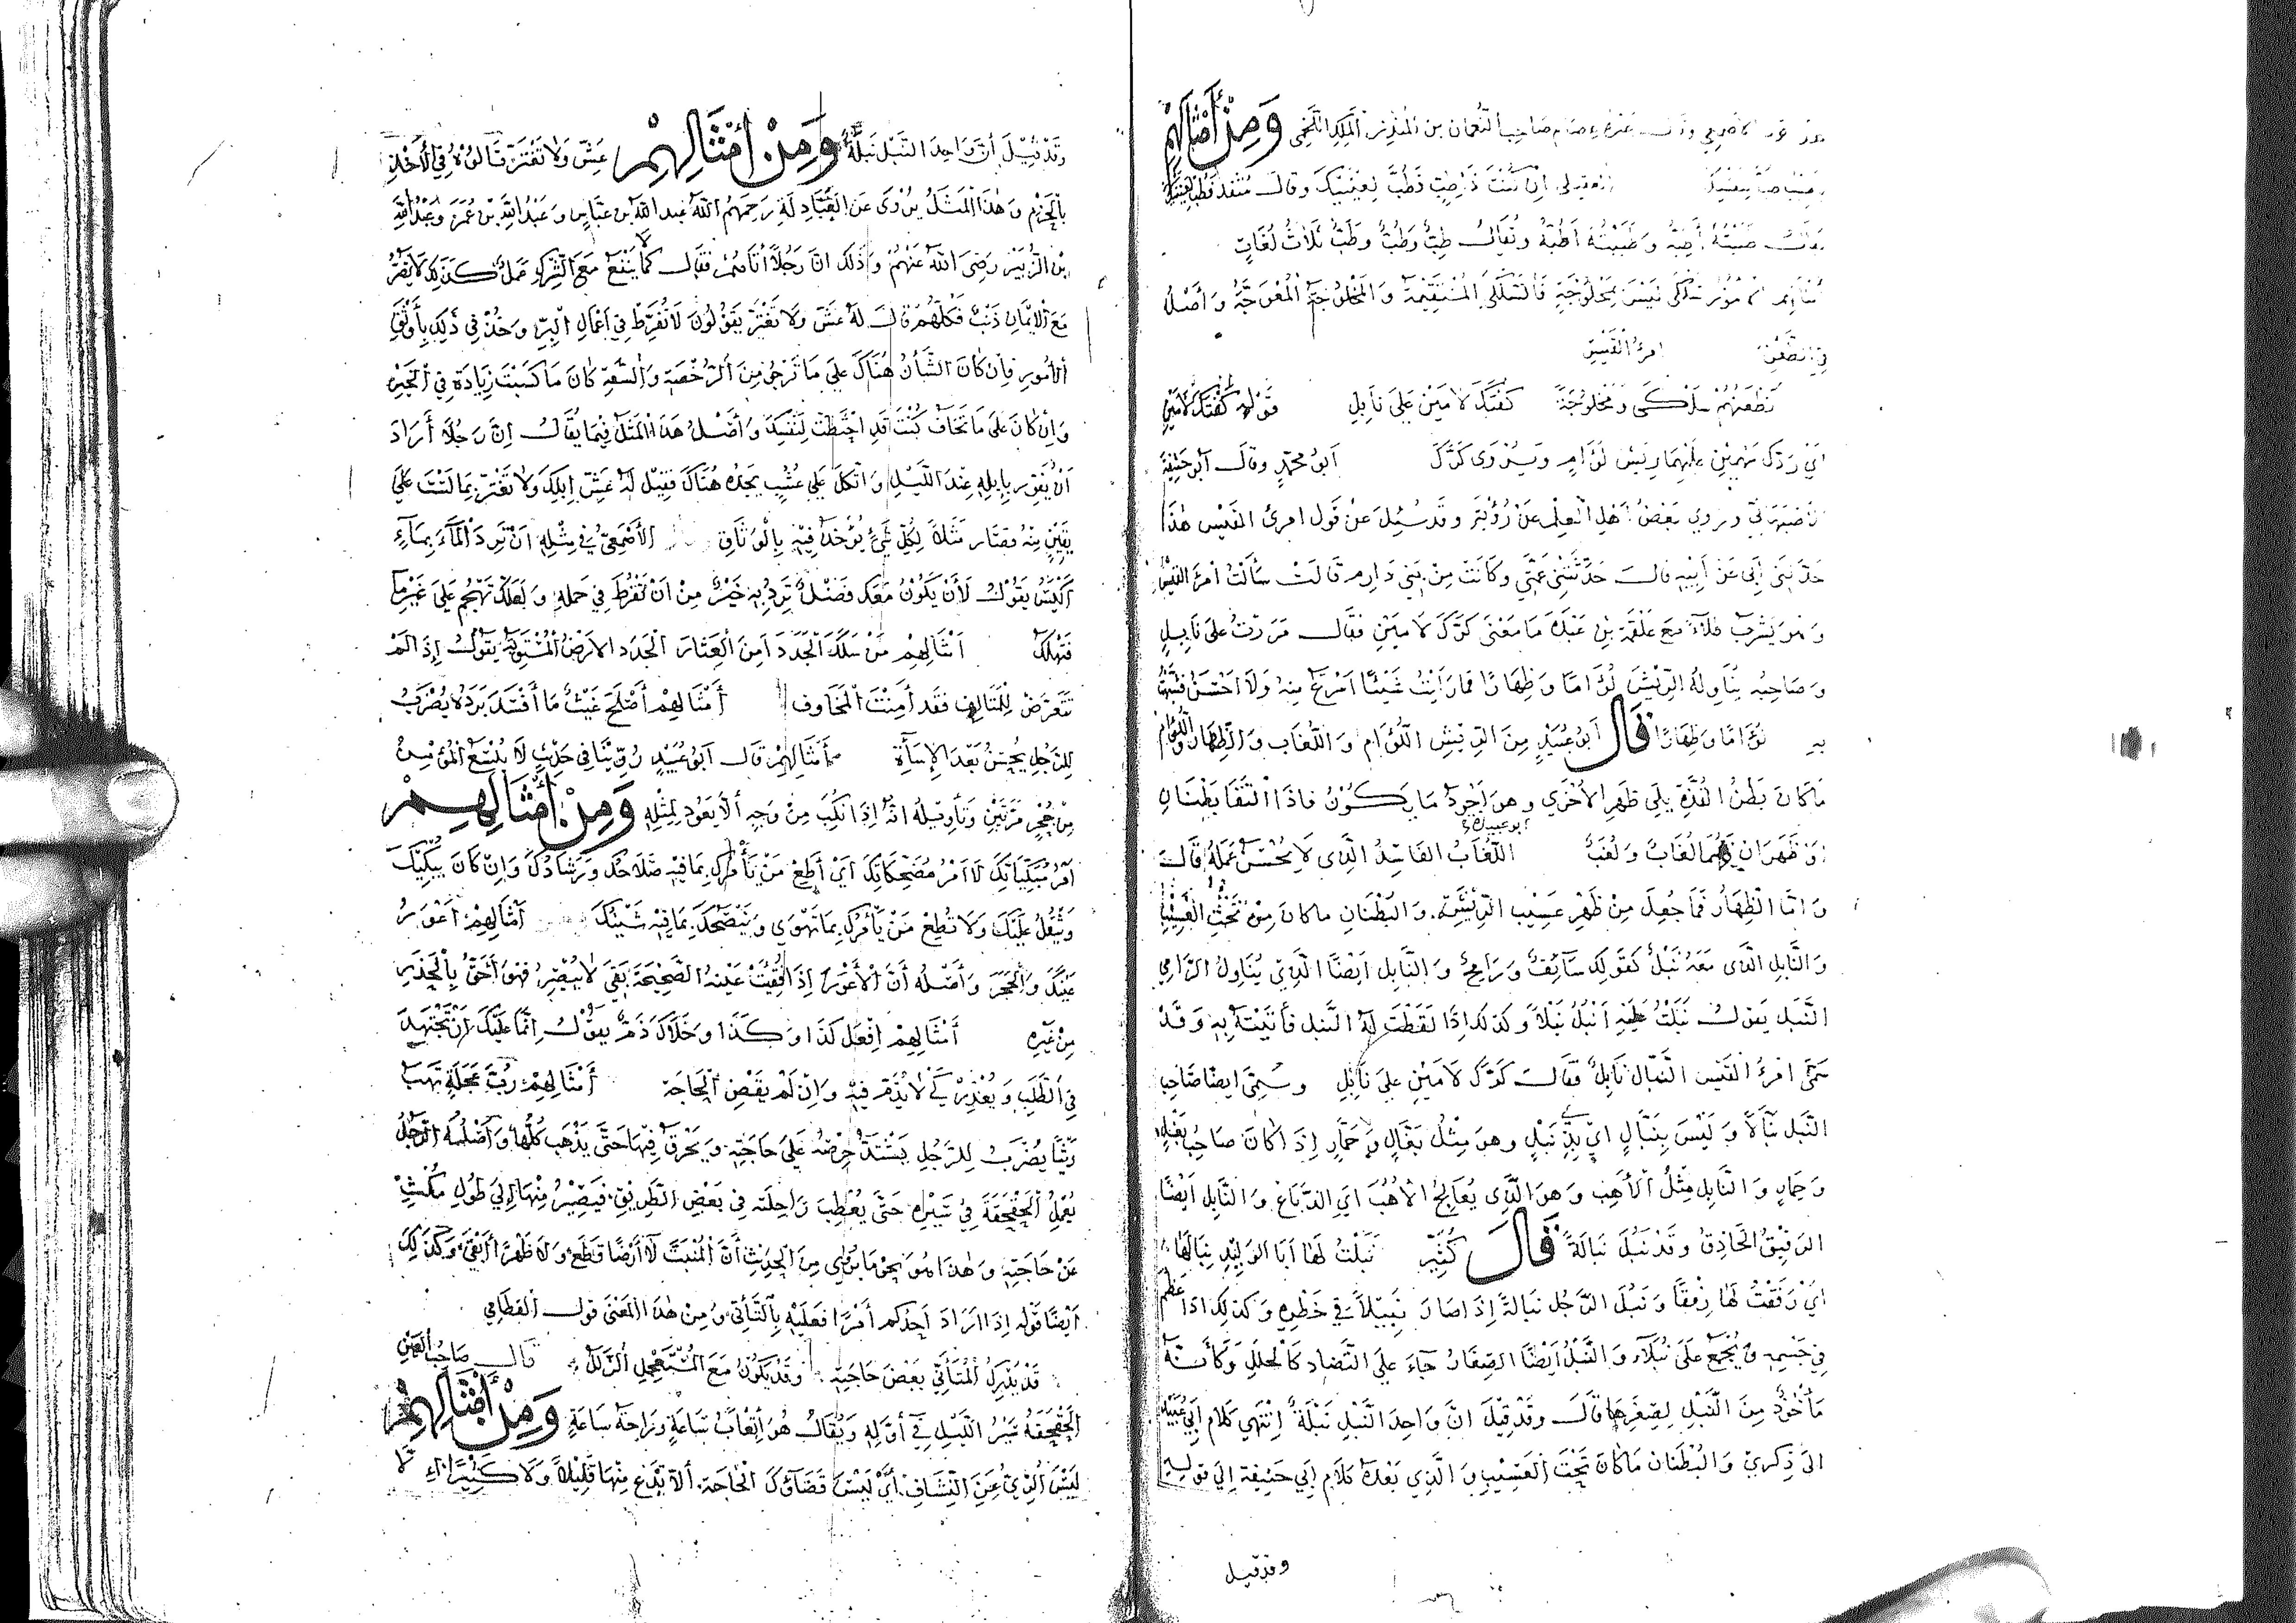 الاصمعي وقال غيره عصام صاحب النعمان بن المنذر الملك اللخمي وَمِنْ أَمْثَالِهِمْ
اِنْ كُنْتَ ذَا طِبٍّ فَطُبَّ لِعَيْنَيْكَ وقال مُنْقِذ
يقال طَبَبْتُهُ أَطِبُّهُ وَطَبَبْتُهُ أَطُبُّهُ وَيُقَالُ طِبٌّ وَطُبٌّ وَطَبٌّ ثَلَاثُ لُغَاتٍ
لَيْسَ بِمَخْلُوجَةٍ فَالسُّلْكَى الْمُسْتَقِيْمَةُ وَالْمَخْلُوجَةُ الْمُعْوَجَّةُ وَأَصْلُهُ
فِي الطَّعْنِ امرؤ القيس
نَطْعَنُهُمْ سُلْكَى وَمَخْلُوجَةً كَفْتَكَ لَامَيْنِ عَلَى نَابِلِ قَوْلُهُ كَفْتَكَ لَامَيْنِ
اَيْ رَدَّكَ سَهْمَيْنِ عَلَيْهِمَا رِيْشٌ لُؤَامٌ وَيُرْوَى كَرَّكَ أَبُو مُحَمَّدٍ وَقَالَ أَبُو حَنِيْفَةَ
الاصبهاني وروى بَعْضُ أَهْلِ الْعِلْمِ عَنْ رُؤْبَةَ وقَدْ سُئِلَ عَنْ قَوْلِ امرئ القيس هذا
حَدَّثَنِي أَبِي عَنْ أَبِيْهِ قَالَ حَدَّثَتْنِي عَمَّتِي وَكَانَتْ مِنْ بَنِي دَارِمٍ قَالَتْ سَأَلْتُ امْرَأَ القَيْسِ
وَهُوَ يَشْرَبُ طِلَاءً مَعَ عَلْقَمَةَ بْنِ عَبَدَةَ مَا مَعْنَى كَرَّكَ لَامَيْنِ فقال مَرَرْتُ عَلَى نَابِلٍ
وَصَاحِبُهُ يُنَاوِلُهُ الرِّيْشَ لُؤَامًا وَظُهَارًا فَمَا رَأَيْتُ شَيْئًا أَسْرَعَ مِنْهُ وَلَا أَحْسَنَ فَشَبَّهْتُ
بِهِ لُؤَامًا وَظُهَارًا قَالَ أَبُو عُبَيْدٍ مِنَ الرِّيْشِ اللُّؤَامُ وَاللُّغَابُ وَالظُّهَارُ وَاللُّؤَامُ
مَا كَانَ بَطْنُ الْقُذَّةِ يَلِي ظَهْرَ الْأُخْرَى وهو أَجْوَدُ مَا يَكُوْنُ فَإِذَا الْتَقَى بَطْنَانِ
أَوْ ظَهْرَانِ فَهُمَا لُغَابٌ وَلَغْبٌ أبو عبيدة اللُّغَابُ الفَاسِدُ الَّذِي لَا يُحْسَنُ عَمَلُهُ قَالَ
وَأَمَّا الظُّهَارُ فَمَا جُعِلَ مِنْ ظَهْرِ عَسِيْبِ الرِّيْشَةِ وَالْبُطْنَانِ مَا كَانَ مِنْ تَحْتِ الْعَسِيْبِ
وَالنَّابِلُ الَّذِي مَعَهُ نَبْلٌ كَقَوْلِكَ سَائِفٌ وَرَامِحٌ وَالنَّابِلُ أَيْضًا الَّذِي يُنَاوِلُ الرَّامِي
النَّبْلَ يَقُوْلُ نَبَلْتُ عَلَيْهِ أَنْبُلُ نَبْلًا وَكَذَلِكَ إِذَا لَقَطْتَ لَهُ النَّبْلَ فَأَتَيْتَهُ بِهِ وَقَدْ
سَمَّى امْرُؤُ الْقَيْسِ النَّبَّالَ نَابِلًا فَقَالَ كَرَّكَ لَامَيْنِ عَلَى نَابِلِ وسمى ايضا صَاحِبَ
النَّبْلِ نَبَّالًا وَلَيْسَ بِنَبَّالٍ اي بِذِي نَبْلٍ وهو مِثْلُ بَغَّالٍ وَحَمَّارٍ إِذَا كَانَ صَاحِبَ بَغْلٍ
وَحِمَارٍ وَالنَّابِلُ مِثْلُ الآهِبِ وَهُوَ الَّذِي يُعَالِجُ الْأُهُبَ أي الدَّبَّاغُ وَالنَّابِلُ أَيْضًا
الرَّفِيْقُ الْحَاذِقُ وَقَدْ نَبُلَ نَبَالَةً قَالَ كُثَيِّرٌ نَبَلْتُ لَهَا أَبَا الوَلِيْدِ نِبَالَهَا
أَيْ رَفَقْتُ لَهَا رِفْقًا وَنَبُلَ الرَّجُلُ نَبَالَةً إِذَا صَارَ نَبِيْلًا فِي خَطَرِهِ وَكَذَلِكَ إِذَا عَظُمَ
فِي جِسْمِهِ وَيُجْمَعُ عَلَى نُبَلَاءَ وَالنَّبَلُ أَيْضًا الصِّغَارُ جَاءَ عَلَى التَّضَادِّ كَالْجَلَلِ وَكَأَنَّهُ
مَأْخُوْذٌ مِنَ النَّبْلِ لِصِغَرِهَا قَالَ وَقَدْ قِيْلَ إِنَّ وَاحِدَ النَّبْلِ نَبْلَةٌ انْتَهَى كَلَامُ أَبِي عُبَيْدٍ
إِلَى ذِكْرِي وَالْبُطْنَانِ مَا كَانَ تَحْتَ الْعَسِيْبِ وَالَّذِي بَعْدَهُ كَلَامُ أَبِي حَنِيْفَةَ إِلَى قَوْلِهِ
وقد قيل
وَقَدْ قِيْلَ أَنَّ وَاحِدَ النَّبْلِ نَبْلَةٌ وَمِنْ أَمْثَالِهِمْ عَشِّ وَلَا تَغْتَرَّ قَالُوْهُ فِي الْأَخْذِ
بِالْحَزْمِ وَهَذَا الْمَثَلُ يُرْوَى عَنِ الْعَبَادِلَةِ رَحِمَهُمُ اللهُ عبد الله بن عَبَّاسٍ وَعَبْدُ اللهِ بْنِ عُمَرَ وَعَبْدُ اللهِ
بْنِ الزُّبَيْرِ رَضِيَ اللهُ عَنْهُمْ وَذَلِكَ أَنَّ رَجُلًا أَتَاهُمْ فَقَالَ كَمَا لَا يَنْفَعُ مَعَ الشِّرْكِ عَمَلٌ كَذَلِكَ لَا يَضُرُّ
مَعَ الْإِيْمَانِ ذَنْبٌ فَكُلُّهُمْ قَالَ لَهُ عَشِّ وَلَا تَغْتَرَّ يَقُوْلُوْنَ لَا تُفَرِّطْ فِي أَعْمَالِ الْبِرِّ وَخُذْ فِي ذَلِكَ بِأَوْثَقِ
الْأُمُوْرِ فَإِنْ كَانَ الشَّأْنُ هُنَاكَ عَلَى مَا تَرْجُو مِنَ الرُّخْصَةِ وَالسَّعَةِ كَانَ مَا كَسَبْتَ زِيَادَةً فِي الْخَيْرِ
وَإِنْ كَانَ عَلَى مَا تَخَافُ كُنْتَ قَدِ احْتَطْتَ لِنَفْسِكَ وَأَصْلُ هَذَا الْمَثَلِ فِيْمَا يُقَالُ إِنَّ رَجُلًا أَرَادَ
أَنْ يُفَوِّزَ بِإِبِلِهِ عِنْدَ اللَّيْلِ وَاتَّكَلَ عَلَى عُشْبٍ يَجِدُهُ هُنَاكَ فَقِيْلَ لَهُ عَشِّ إِبِلَكَ وَلَا تَغْتَرَّ بِمَا لَسْتَ عَلَى
يَقِيْنٍ مِنْهُ فَصَارَ مَثَلًا لِكُلِّ شَيْءٍ يُؤْخَذُ فِيْهِ بِالْوَثَاقِ الْأَصْمَعِيُّ فِي مِثْلِهِ أَنْ تَرِدَ الْمَاءَ بِمَاءٍ
أَكْيَسُ يَقُوْلُ لَأَنْ يَكُوْنَ مَعَكَ فَضْلٌ تَرِدُ بِهِ خَيْرٌ مِنْ أَنْ تُفَرِّطَ فِي حَمْلِهِ وَلَعَلَّكَ تَهْجُمُ عَلَى غَيْرِ مَاءٍ
فَتَهْلِكَ أَمْثَالِهِمْ مَنْ سَلَكَ الْجَدَدَ أَمِنَ الْعِثَارَ الْجَدَدُ الْأَرْضُ الْمُسْتَوِيَةُ يَقُوْلُ إِذَا لَمْ
تَتَعَرَّضْ لِلْمَتَالِفِ فَقَدْ أَمِنْتَ الْمَخَاوِفَ أَمْثَالِهِمْ أَصْلَحَ غَيْثٌ مَا أَفْسَدَ بَرَدُهُ يُضْرَبُ
لِلرَّجُلِ يُحْسِنُ بَعْدَ الْإِسَاءَةِ أَمْثَالِهِمْ قَالَ أَبُو عُبَيْدٍ رُوِّيْنَا فِي حَدِيْثٍ لَا يُلْسَعُ الْمُؤْمِنُ
مِنْ جُحْرٍ مَرَّتَيْنِ وَتَأْوِيْلُهُ أَنَّهُ إِذَا نُكِبَ مِنْ وَجْهٍ أَلَّا يَعُوْدَ لِمِثْلِهِ وَمِنْ أَمْثَالِهِمْ
أَمْرُ مُبْكِيَاتِكَ لَا أَمْرُ مُضْحِكَاتِكَ أَيْ أَطِعْ مَنْ يَأْمُرُكَ بِمَا فِيْهِ صَلَاحُكَ وَرَشَادُكَ وَإِنْ كَانَ يُبْكِيْكَ
وَيَثْقُلُ عَلَيْكَ وَلَا تُطِعْ مَنْ يَأْمُرُكَ بِمَا تَهْوَى وَيُضْحِكُكَ بِمَا فِيْهِ شَيْنُكَ أَمْثَالِهِمْ أَعْوَرُ
عَيْنَكَ وَالْحَجَرَ وَأَصْلُهُ أَنَّ الْأَعْوَرَ إِذَا فُقِئَتْ عَيْنُهُ الصَّحِيْحَةُ بَقِيَ لَا يُبْصِرُ فَهُوَ أَحَقُّ بِالْحَذَرِ
مِنْ غَيْرِهِ أَمْثَالِهِمْ اِفْعَلْ كَذَا وَكَذَا وَخَلَاكَ ذَمٌّ يَقُوْلُ إِنَّمَا عَلَيْكَ أَنْ تَجْتَهِدَ
فِي الطَّلَبِ وَيُعْذِرُ كَيْ لَا يُذَمَّ فِيْهِ وَإِنْ لَمْ يَقْضِ الْحَاجَةَ أَمْثَالِهِمْ رُبَّ عَجَلَةٍ تَهَبُ
رَيْثًا يُضْرَبُ لِلرَّجُلِ يَشْتَدُّ حِرْصُهُ عَلَى حَاجَتِهِ وَيَخْرَقُ فِيْهَا حَتَّى يَذْهَبَ كُلُّهَا وَأَصْلُهُ الرَّجُلُ
يُعْمِلُ الْحَقْحَقَةَ فِي سَيْرِهِ حَتَّى يُعْطِبَ رَاحِلَتَهُ فِي بَعْضِ الطَّرِيْقِ فَيَصِيْرُ مِنْهَا إِلَى طُوْلِ مَكْثٍ
عَنْ حَاجَتِهِ وَهَذَا هُوَ نَحْوُ مَا يُرْوَى مِنَ الْحَدِيْثِ أَنَّ الْمُنْبَتَّ لَا أَرْضًا قَطَعَ وَلَا ظَهْرًا أَبْقَى وَكَذَلِكَ
أَيْضًا قَوْلُهُ إِذَا أَرَادَ أَحَدُكُمْ أَمْرًا فَعَلَيْهِ بِالتَّأَنِّي وَمِنْ هَذَا الْمَعْنَى قَوْلُ الْقُطَامِي
قَدْ يُدْرِكُ الْمُتَأَنِّي بَعْضَ حَاجَتِهِ وَقَدْ يَكُوْنُ مَعَ الْمُسْتَعْجِلِ الزَّلَلُ قَالَ صَاحِبُ الْعَيْنِ
الْحَقْحَقَةُ سَيْرُ اللَّيْلِ فِي أَوَّلِهِ وَيُقَالُ هُوَ إِتْعَابُ سَاعَةٍ وَرَاحَةُ سَاعَةٍ وَمِنْ أَمْثَالِهِمْ
لَيْسَ الرِّيُّ عَنِ التَّشَافِ أَيْ لَيْسَ قَضَاؤُكَ الْحَاجَةَ أَلَّا تَدَعَ مِنْهَا قَلِيْلًا وَلَا كَثِيْرًا